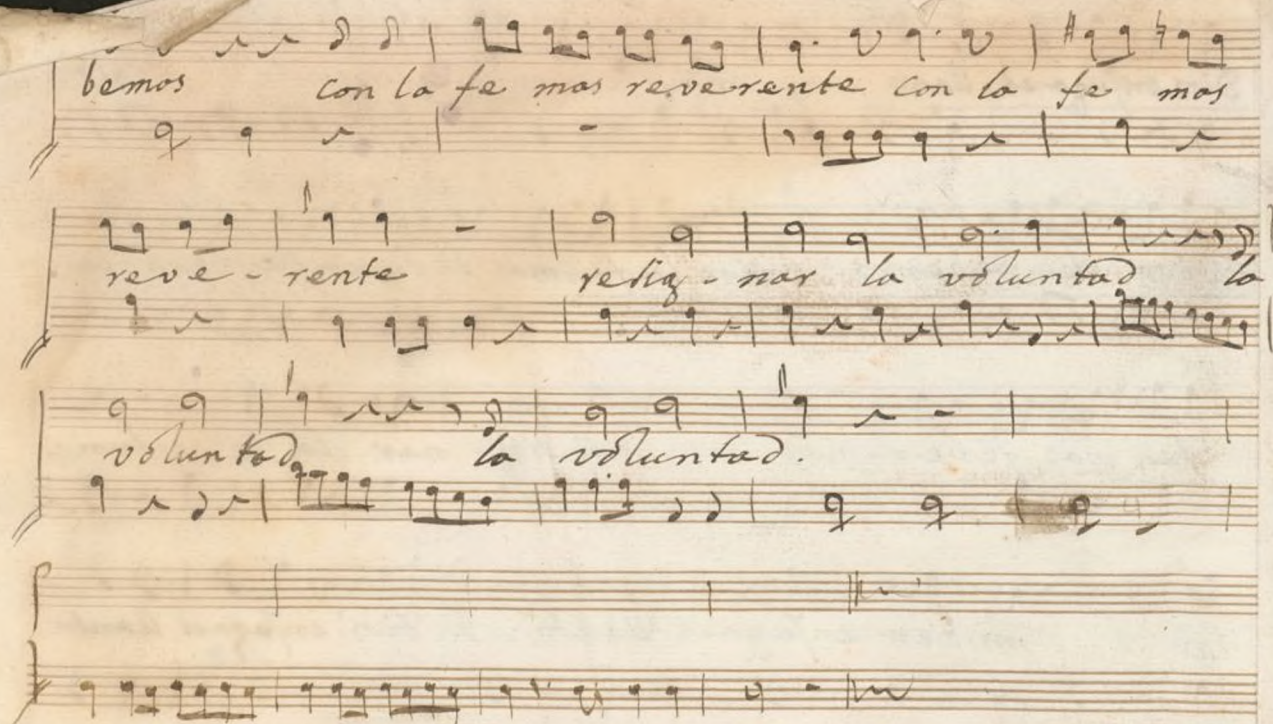 bemos con la fe mas reverente con la fe mas
reve - rente resig - nar la voluntad la
voluntad la voluntad.